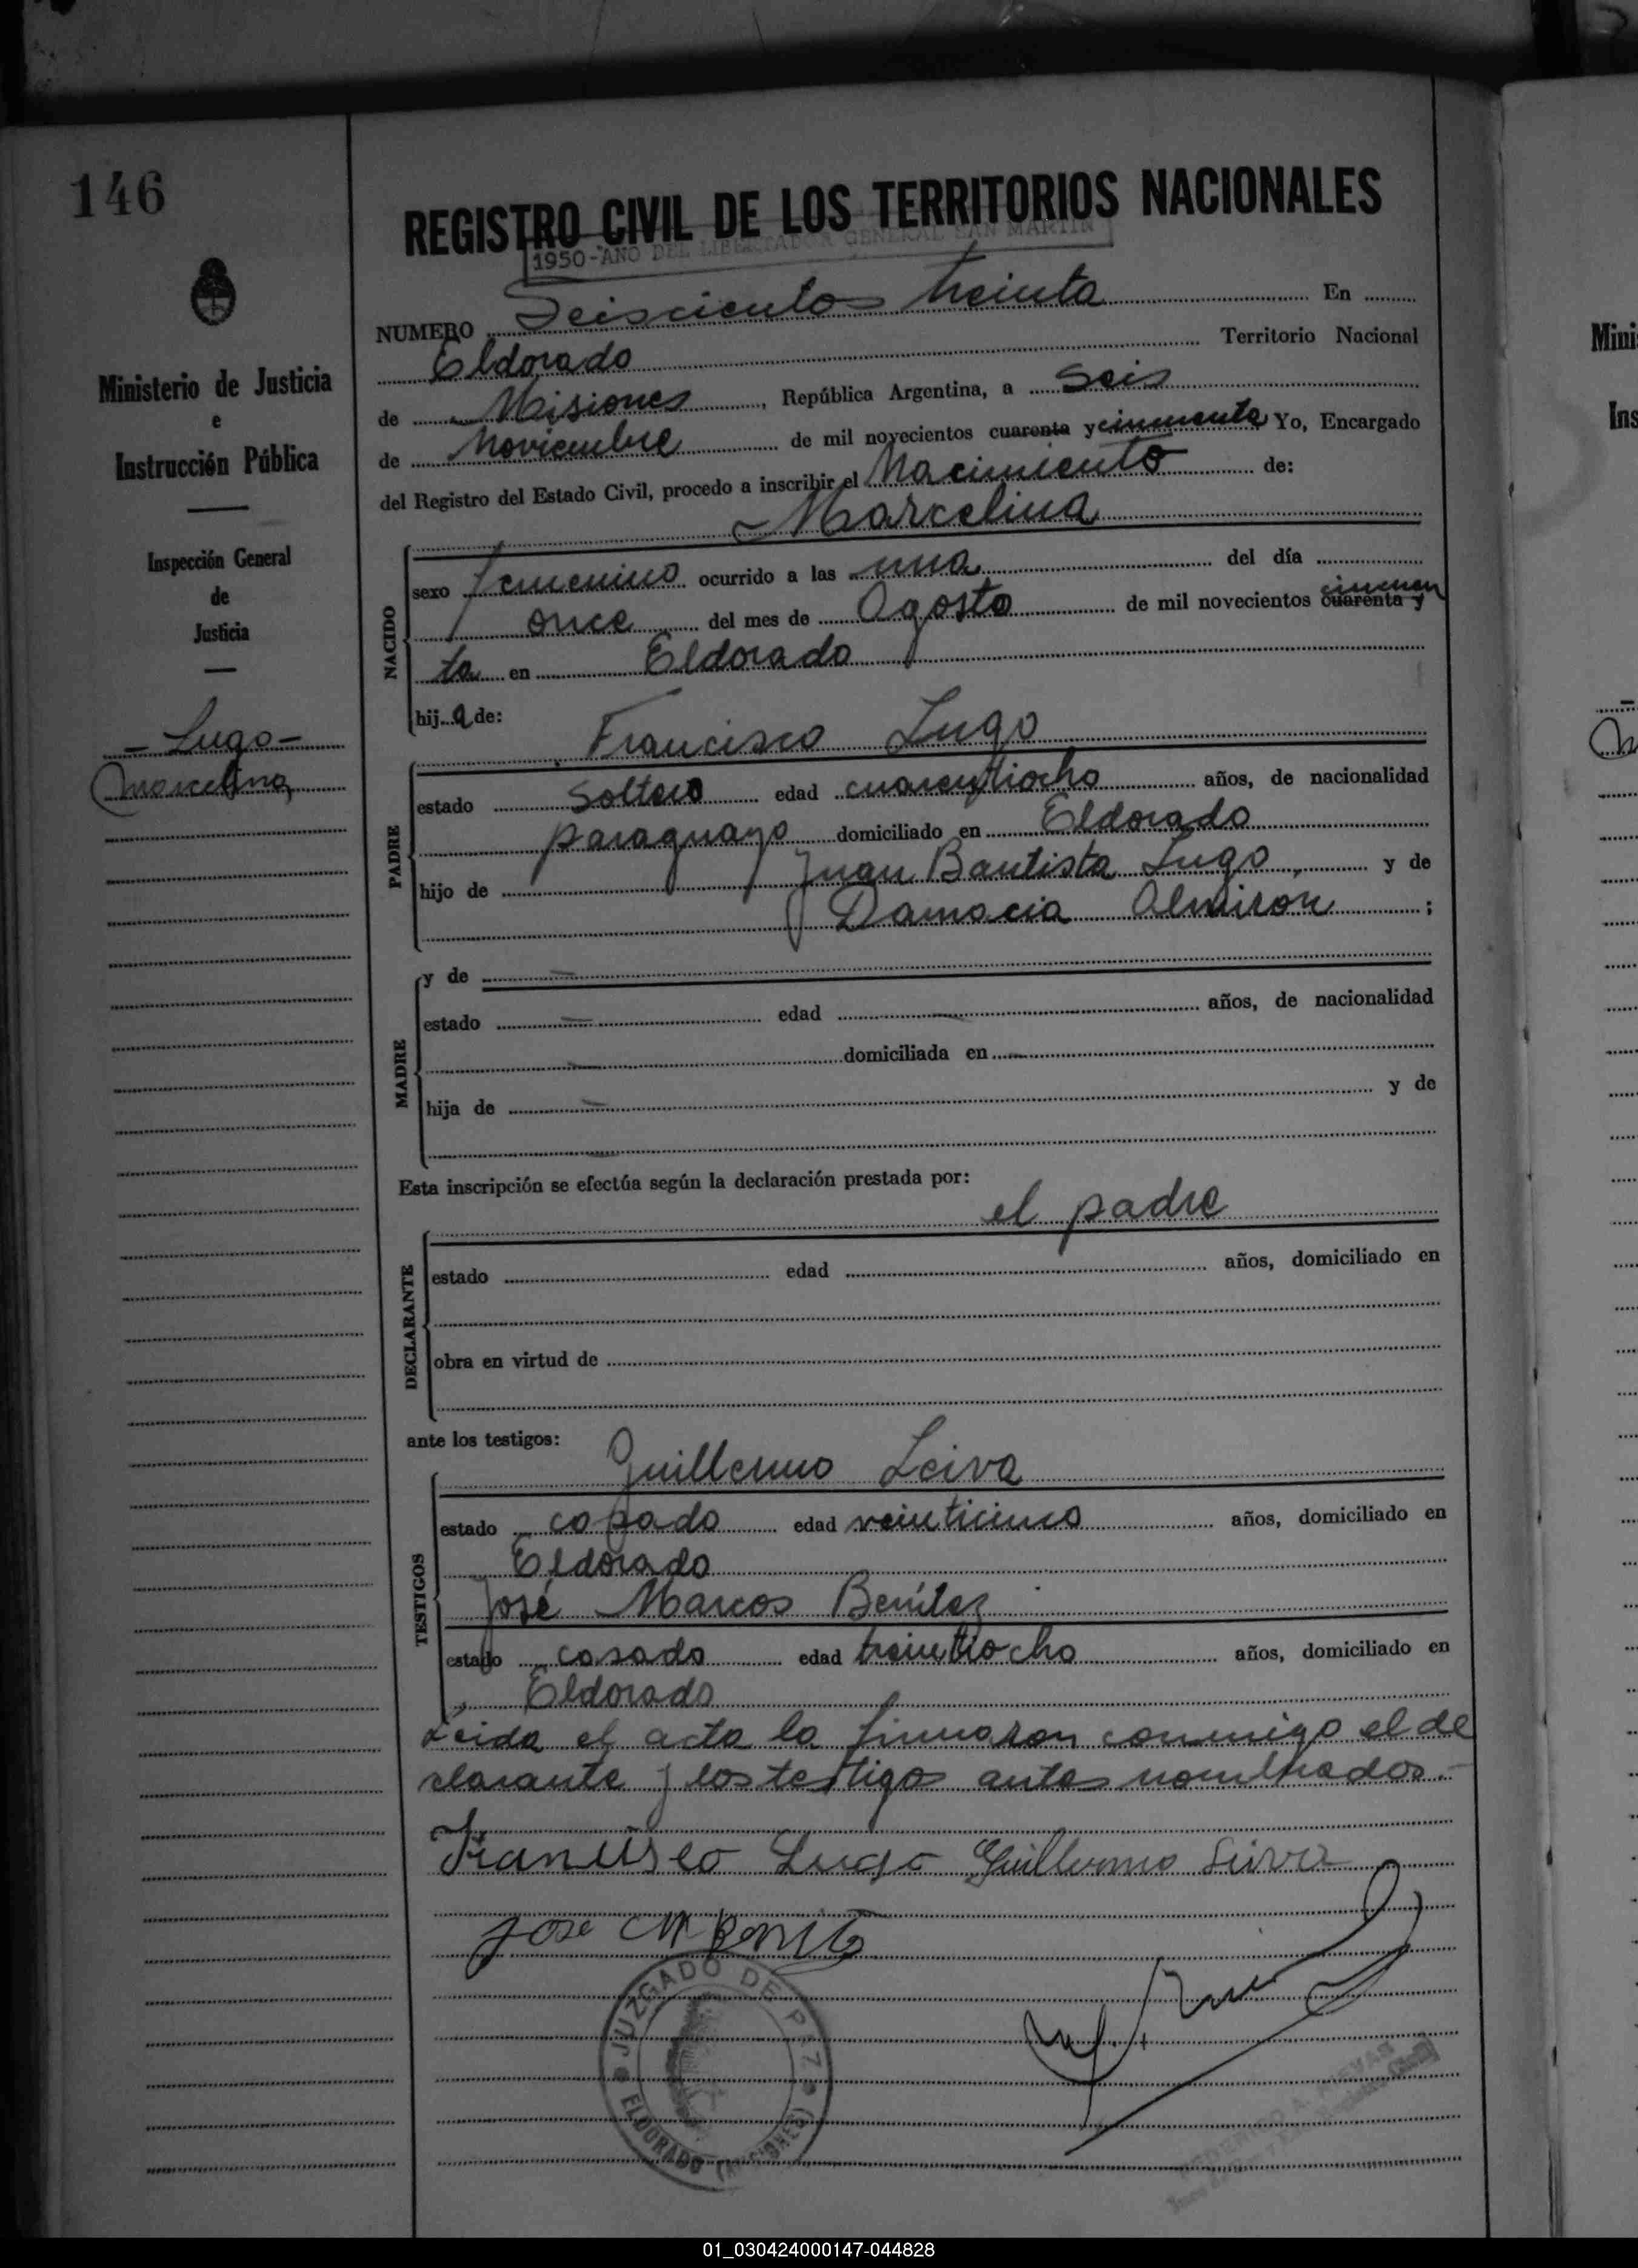 146
REGISTRO CIVIL DE LOS TERRITORIOS NACIONALES
1950-AÑO DEL LIBERTADOR GENERAL SAN MARTIN
NUMERO Seiscientos treinta En
Eldorado Territorio Nacional
de Misiones, República Argentina, a Seis
de Noviembre de mil novecientos cuarenta y cincuenta Yo, Encargado
del Registro del Estado Civil, procedo a inscribir el Nacimiento de:
Marcelina
Ministerio de Justicia
e
Instrucción Pública
Inspección General
de
Justicia
- Lugo -
Marcelina
NACIDO
sexo femenino ocurrido a las una del día
once del mes de Agosto de mil novecientos cuarenta y cincuen
ta en Eldorado
hija de: Francisco Lugo
PADRE
estado Soltero edad cuarentiocho años, de nacionalidad
paraguayo domiciliado en Eldorado
hijo de Juan Bautista Lugo y de
Damacia Almirón ;
MADRE
y de —
estado — edad — años, de nacionalidad
— domiciliada en —
hija de — y de
—
Esta inscripción se efectúa según la declaración prestada por:
el padre
DECLARANTE
estado edad años, domiciliado en
obra en virtud de
ante los testigos:
Guillermo Leiva
TESTIGOS
estado casado edad veinticinco años, domiciliado en
Eldorado
José Marcos Benítez
estado casado edad treintiocho años, domiciliado en
Eldorado
Leida el acta la firmaron conmigo el de
clarante y los testigos antes nombrados.-
Francisco Lugo Guillermo Leiva
Jose M Benite
JUZGADO DE PAZ
ELDORADO (MISIONES)
Mini
Ins
01_030424000147-044828